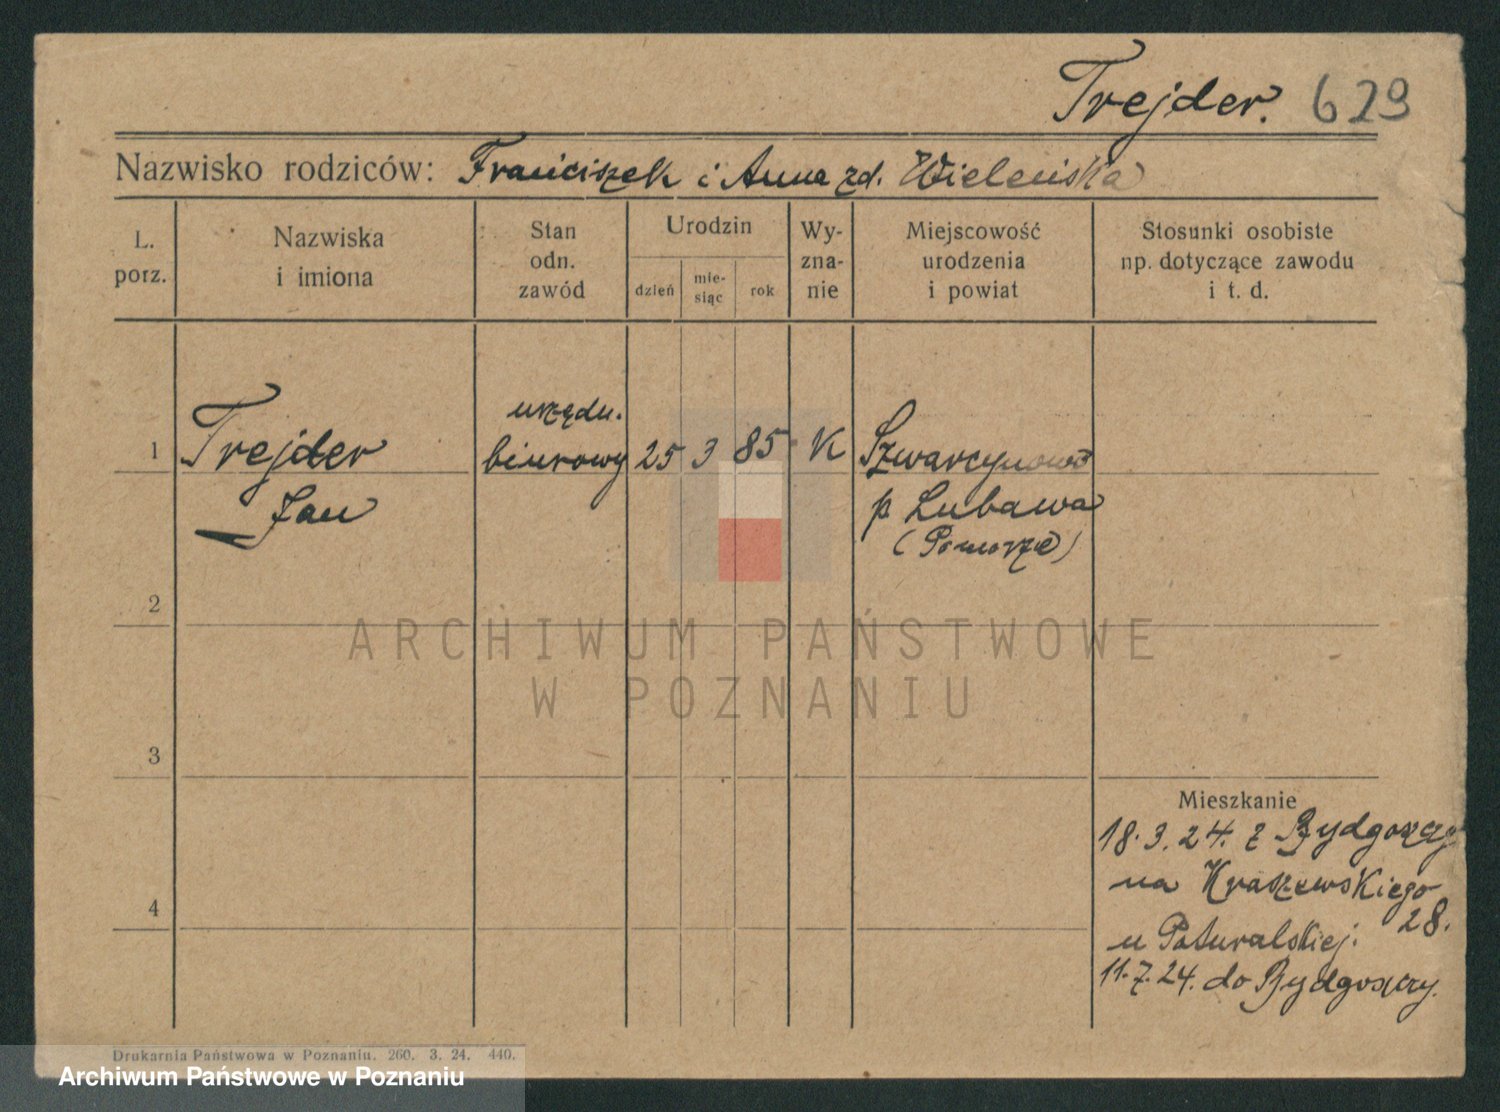 Trejder. 629
Nazwisko rodziców: Franciszek i Anna zd. Wieleńska
L. porz.
Nazwiska i imiona
Stan odn. zawód
Urodzin
dzień
mie-
siąc
rok
Wy-
zna-
nie
Miejscowość
urodzenia
i powiat
Stosunki osobiste
np. dotyczące zawodu
i t. d.
1
Trejder
Jan
urzędn.
biurowy
25 3 85 K
Szwarcynowo
p Lubawa
(Pomorze)
2
3
4
Mieszkanie
18.3.24. z Bydgoszczy
na Kraszewskiego
28.
u Poturalskiej.
11.7.24. do Bydgoszczy.
ARCHIWUM PAŃSTWOWE
W POZNANIU
Drukarnia Państwowa w Poznaniu. 260. 3. 24. 440.
Archiwum Państwowe w Poznaniu